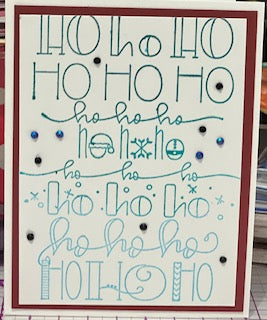 HO ho HO
HO HO HO
ho ho ho
ho ho ho
ho ho ho
ho ho ho
ho ho ho
HO HO HO